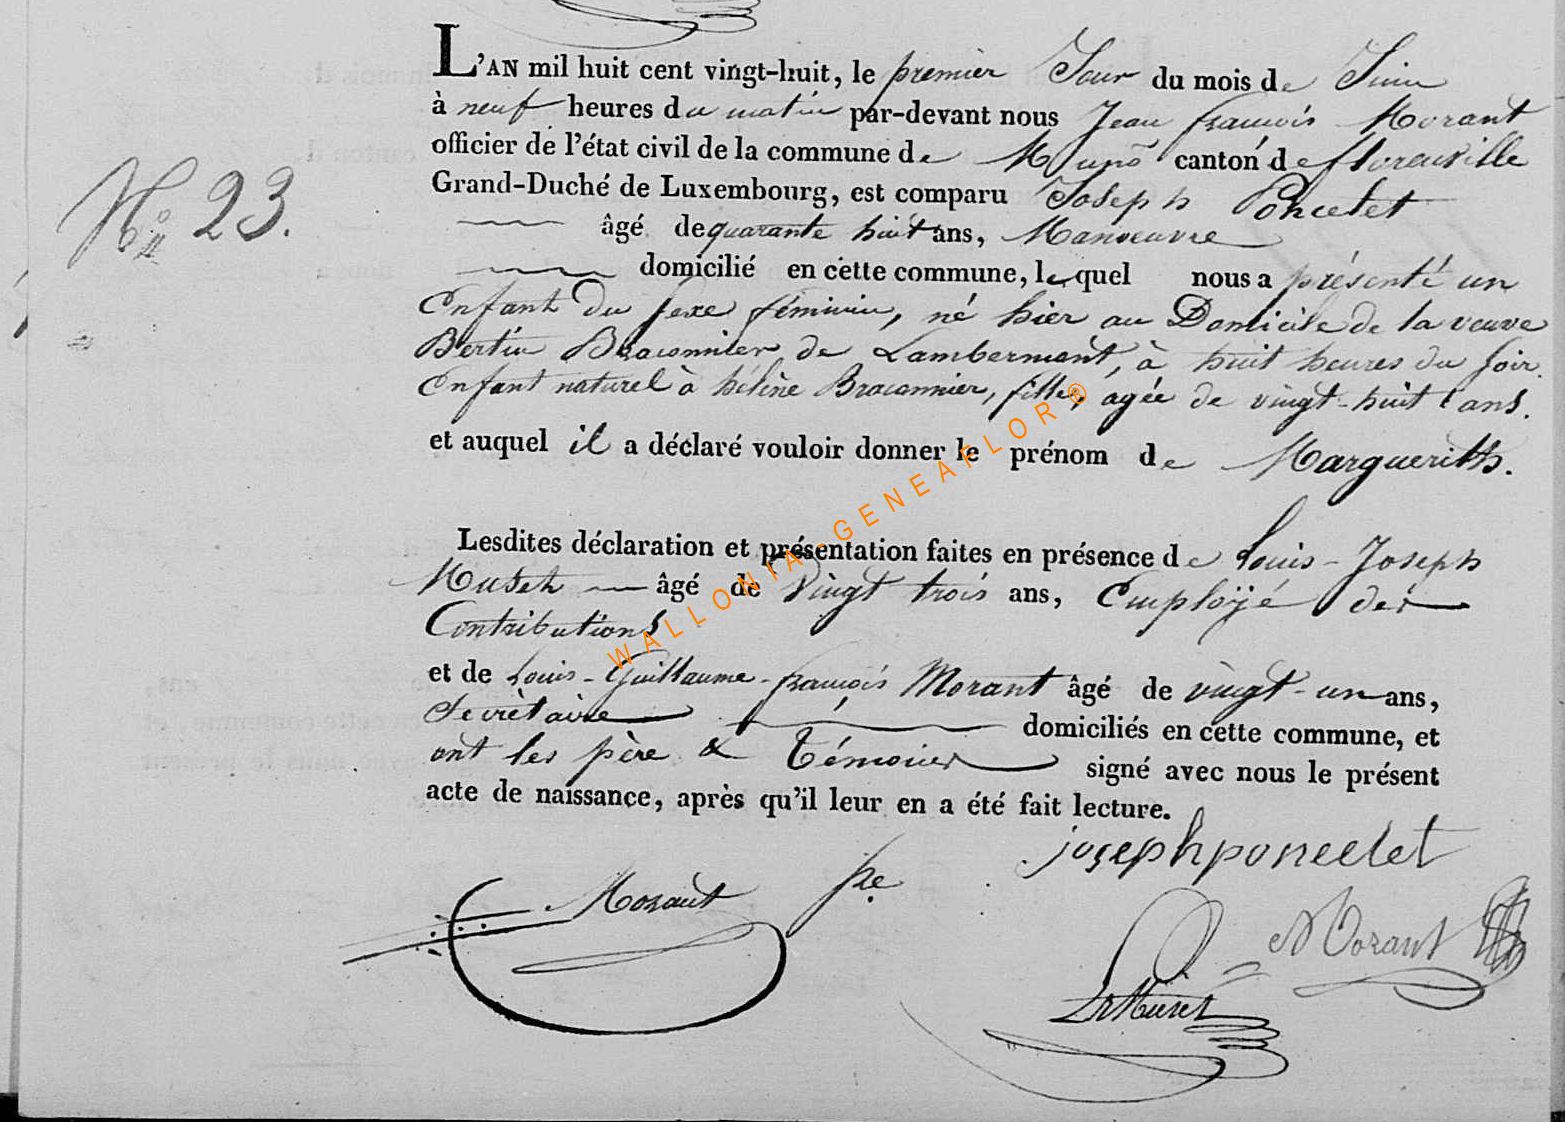 L'AN mil huit cent vingt-huit, le premier Jour du mois de Juin
à neuf heures du matin par-devant nous Jean françois Morant
officier de l'état civil de la commune de Muno canton de florenville
Grand-Duché de Luxembourg, est comparu Joseph Poncelet
N.º 23.
âgé de quarante huit ans, Manoeuvre
domicilié en cette commune, lequel nous a présenté un
Enfant du sexe féminin, né hier au Domicile de la veuve
Bertin Braconnier de Lambermont, à huit heures du soir
Enfant naturel à héléne Braconnier, fille, agée de vingt-huit ans.
et auquel il a déclaré vouloir donner le prénom de Margueritte.
Lesdites déclaration et présentation faites en présence de Louis-Joseph
âgé de Vingt trois ans, Employé des
Contributions
et de Louis-Guillaume-françois Morant âgé de vingt-un ans,
Secrètaire domiciliés en cette commune, et
ont les père & témoins signé avec nous le présent
acte de naissance, après qu'il leur en a été fait lecture.
joseph poncelet
Morant
Morant
WALLONIA-GENEAFLOR®